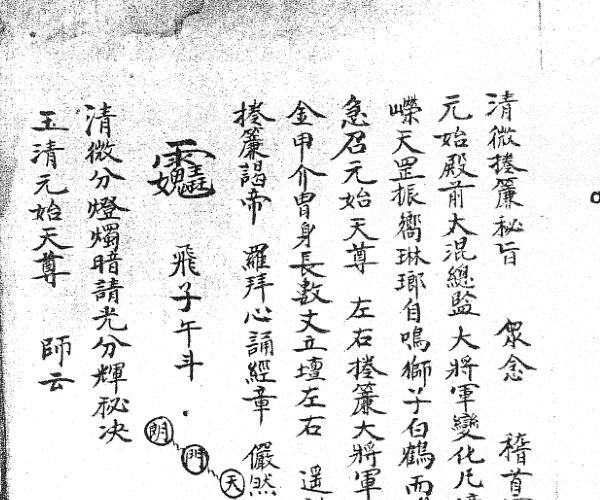 清微捲簾秘旨 衆念 稽首
元始殿前大混總監大將軍變化凡
嶸天罡振嚮琳瑯自鳴獅子白鶴而
急召元始天尊 左右捲簾大將軍
金甲介冑身長數丈立壇左右 遥
捲簾謁帝 羅拜心誦經章 儼然
飛子午斗
朗門天
清微分燈燭暗請光分輝秘决
玉清元始天尊 師云